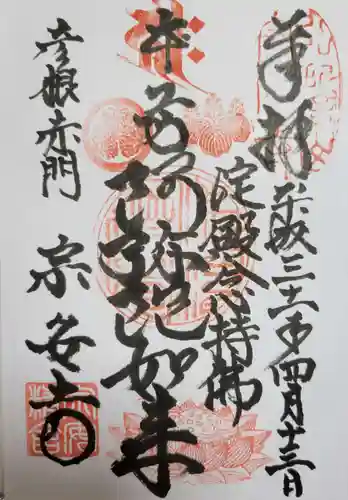 奉拝 平成三十一年四月十三日
淀殿念持佛
本尊阿弥陀如来
彦根赤門
宗安寺